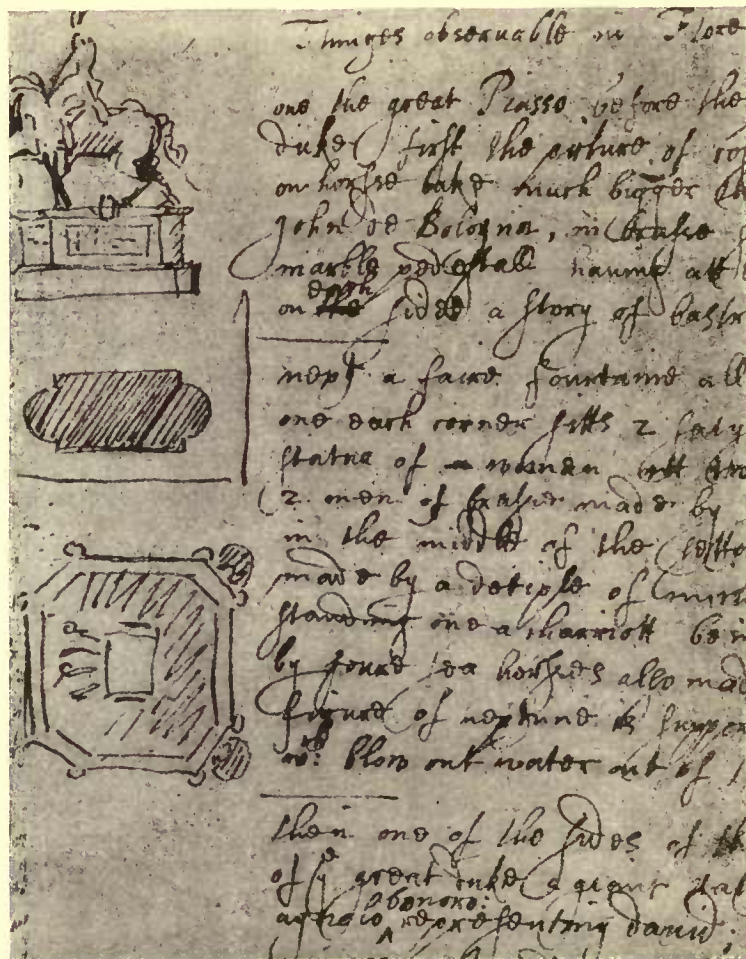 Thinges observable in Flore
one the great Piasso before the
duke first the picture of cos
on horse bake much bigger
John de Bologna, in brasse
marble pedestall having att
on each sides a story of bastr
next a faire fountaine all
one each corner sitts 2 saty
statua of a woman
2 men of brasse made by
in the middle of the
made by a deciple of
standing one a charriott bein
by foure sea horsses also mad
figure of neptune is suppor
wch: blow out water out of
then one of the sides of th
of ye great duke a giant
bonoro:
representing david